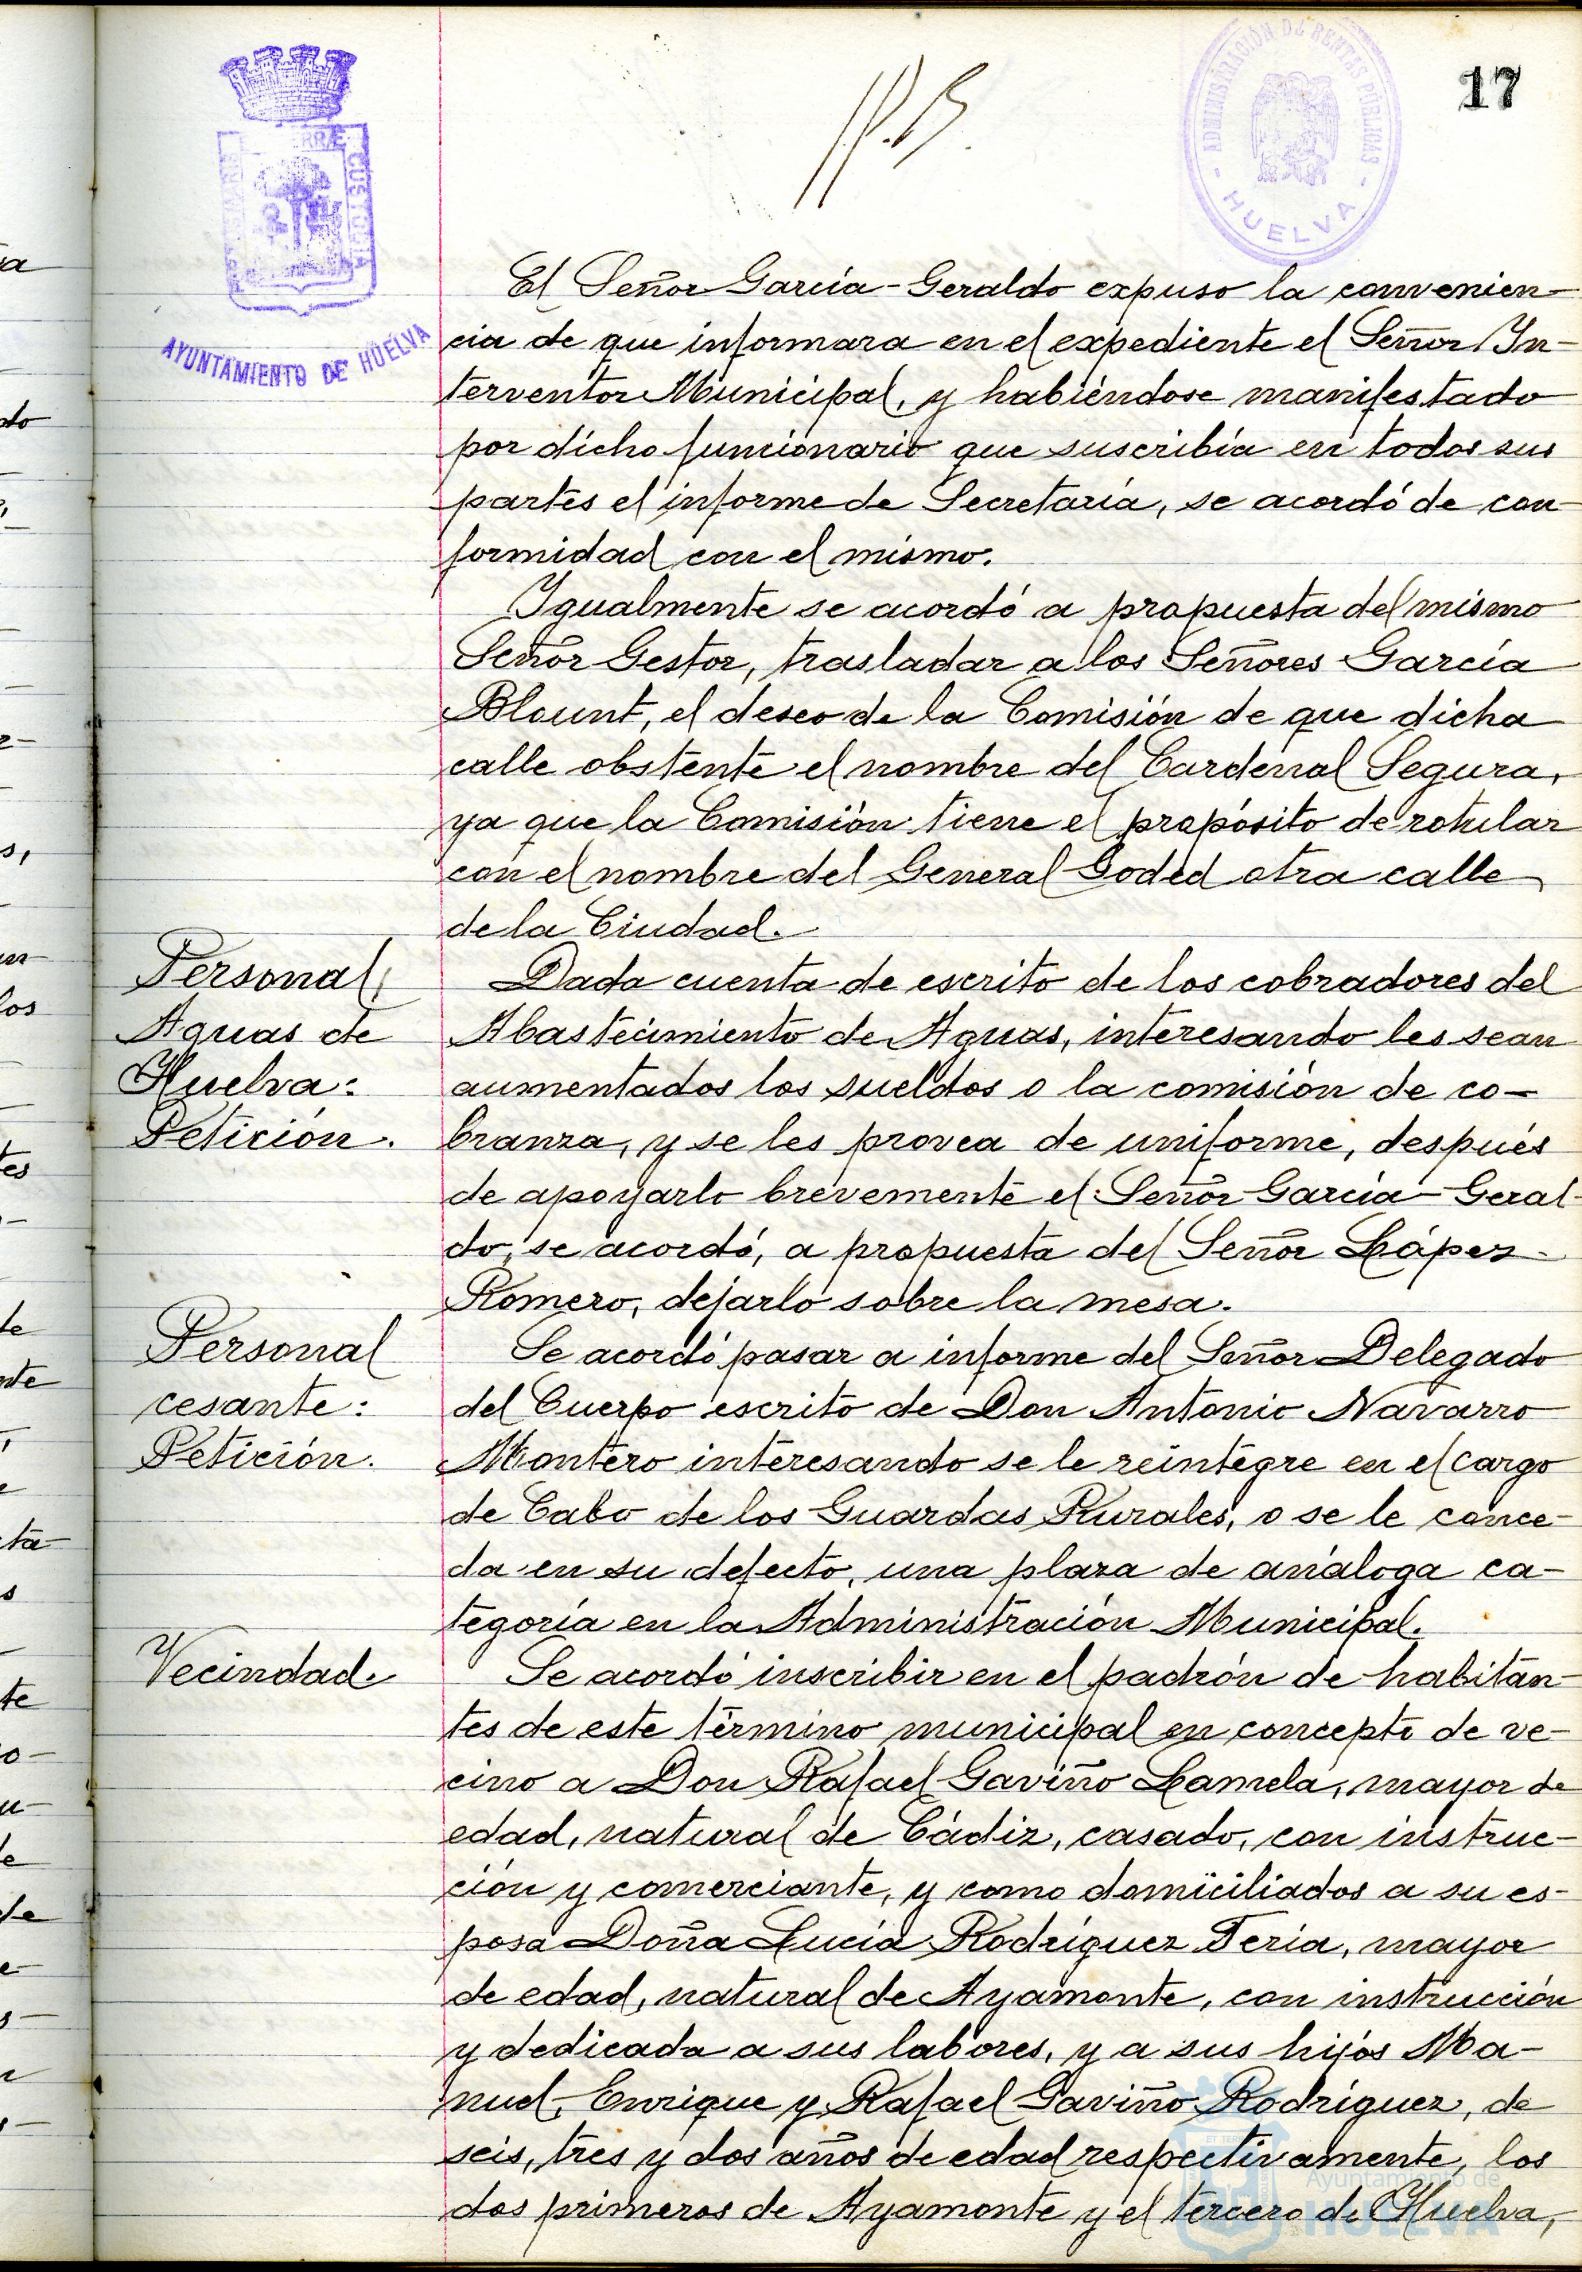 17
ADMINISTRACIÓN DE RENTAS PÚBLICAS
HUELVA
CUSTODIA
AYUNTAMIENTO DE HUELVA
El Señor García-Geraldo expuso la convenien-
cia de que informara en el expediente el Señor In-
terventor Municipal, y habiéndose manifestado
por dicho funcionario que suscribía en todos sus
partes el informe de Secretaría, se acordó de con-
formidad con el mismo.
Igualmente se acordó a propuesta del mismo
Señor Gestor, trasladar a los Señores García
Blount, el deseo de la Comisión de que dicha
calle obstente el nombre del Cardenal Segura,
ya que la Comisión tiene el propósito de rotular
con el nombre del General Goded otra calle
de la Ciudad.
Personal,
Aguas de
Huelva:
Petición.
Dada cuenta de escrito de los cobradores del
Abastecimiento de Aguas, interesando les sean
aumentados los sueldos o la comisión de co-
branza, y se les provea de uniforme, después
de apoyarlo brevemente el Señor García-Geral-
do, se acordó, a propuesta del Señor López
Romero, dejarlo sobre la mesa.
Personal
cesante:
Petición.
Se acordó pasar a informe del Señor Delegado
del Cuerpo escrito de Don Antonio Navarro
Montero interesando se le reintegre en el cargo
de Cabo de los Guardas Rurales, o se le conce-
da en su defecto, una plaza de análoga ca-
tegoría en la Administración Municipal.
Vecindad.
Se acordó inscribir en el padrón de habitan-
tes de este término municipal en concepto de ve-
cino a Don Rafael Gaviño Lamela, mayor de
edad, natural de Cádiz, casado, con instruc-
ción y comerciante, y como domiciliados a su es-
posa Doña Lucía Rodríguez Feria, mayor
de edad, natural de Ayamonte, con instrucción
y dedicada a sus labores, y a sus hijos Ma-
nuel, Enrique y Rafael Gaviño Rodríguez, de
seis, tres y dos años de edad respectivamente, los
dos primeros de Ayamonte y el tercero de Huelva,
Ayuntamiento de
HUELVA